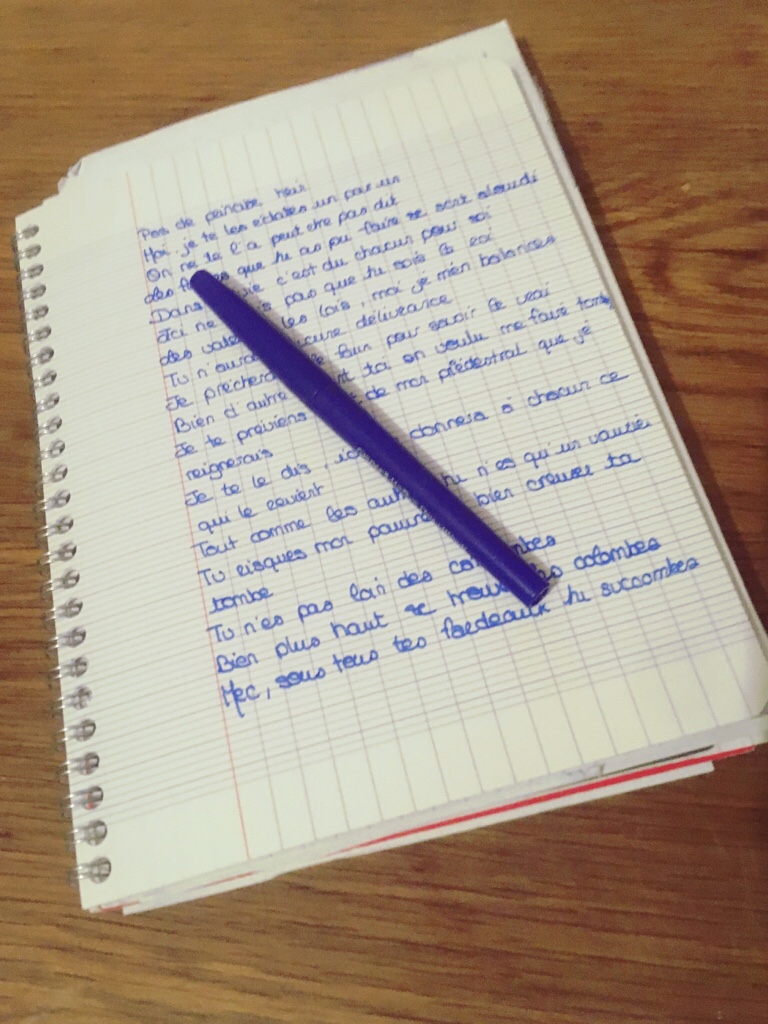 Pas de peincipe, mais
Moi je te les éclates un par un
On ne te l'a peut etre pas dit
des que tu as pu faire se sont alourdi
Dans vie c'est du chacun pour soi
Ici ne pas que tu sois le roi
des les lois, moi je m'en balances
Tu n'aura aucune délivrance
Je precherai le faux pour savoir le vrai
Bien d'autre toi on voulu me faire tomb
Je te previens de mon piédestral que je
reignerais
Je te le dis, donnera à chacun ce
qui le revient
Tout comme les autres tu n'es qu'un vaurien
Tu risques mon pauvre bien creuser ta
tombe
Tu n'es pas loin des
Bien plus haut se trouve les colombes
Mec, sous tous tes fardeaux tu succombes